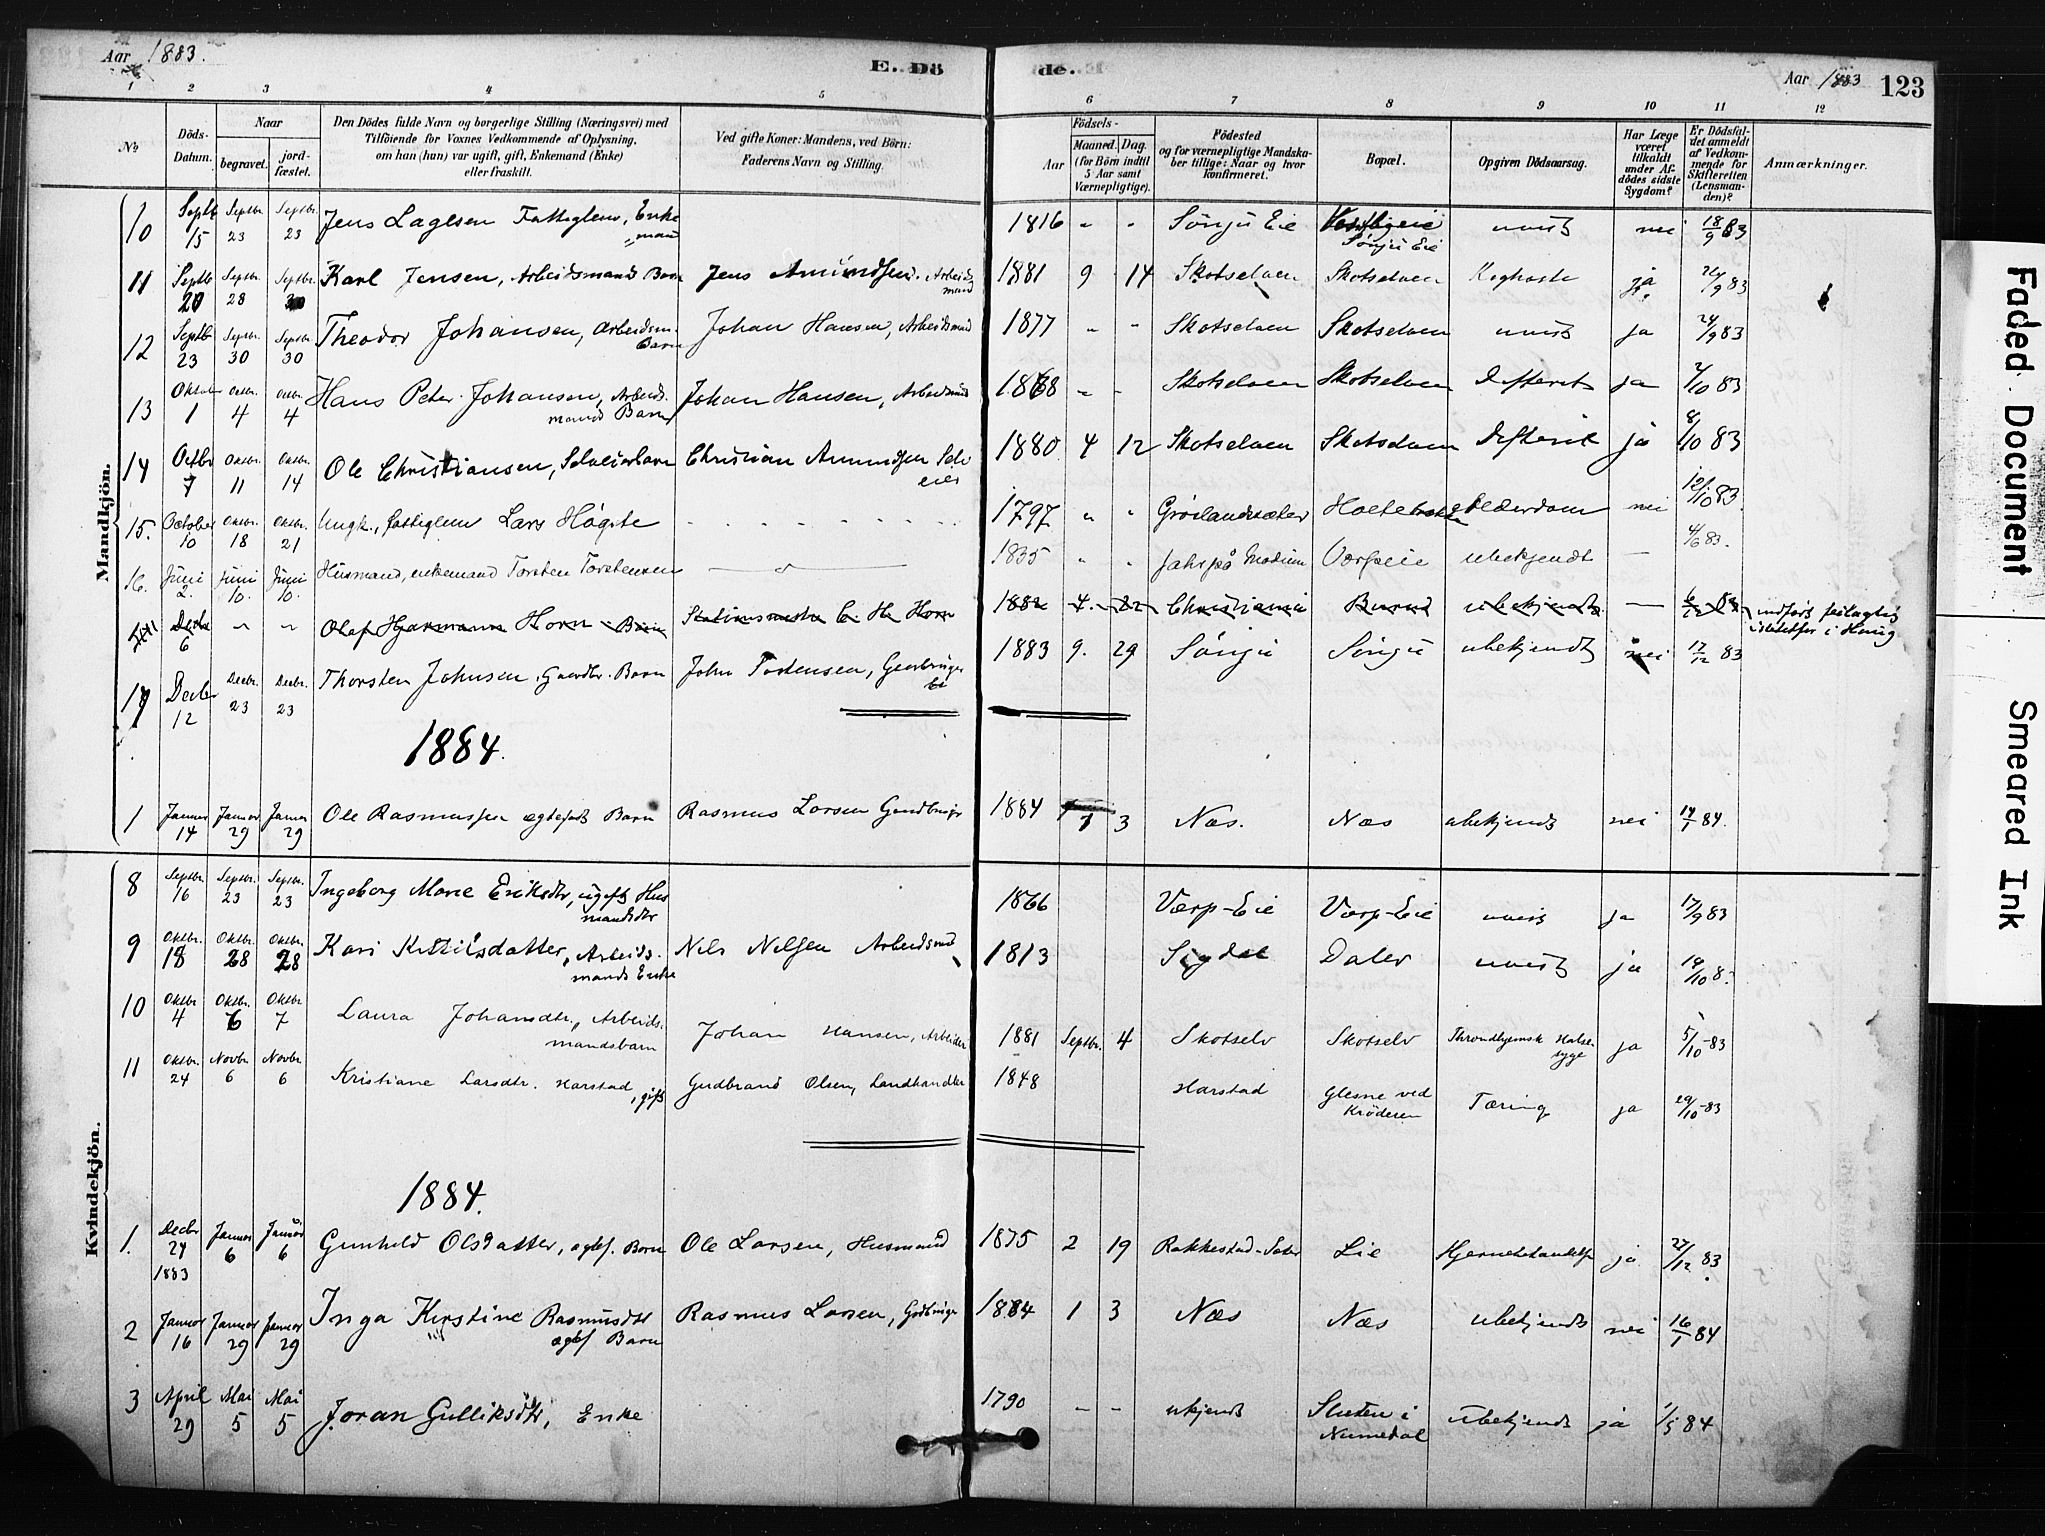 Aar 1883. E. Dö de. Aar 1883 123
1 2 3 4 5 6 7 8 9 10 11 12
No. Döds-Datum. Naar begravet. jordfæstet. Den Dödes fulde Navn og borgerlige Stilling (Næringsvei) med Tilföiende for Voxnes Vedkommende af Oplysning, om han (hun) var ugift, gift, Enkemand (Enke) eller fraskilt. Ved gifte Koner: Mandens, ved Börn: Faderens Navn og Stilling. Födsels- Aar Maaned. Dag. (for Börn indtil 5 Aar samt Værnepligtige). Födested og for værnepligtige Mandskaber tillige: Naar og hvor konfirmeret. Bopæl. Opgiven Dödsaarsag. Har Læge været tilkaldt under Afdödes sidste Sygdom? Er Dödsfaldet anmeldt af Vedkommende for Skifteretten (Lensmanden)? Anmærkninger.
Mandkjön.
10 Septb 15 Septbr. 23 Septbr. 23 Jens Lagesen Fattiglem, Enkemand 1816 " " Sönju Eie Sönju Eie uvist nei 18/9 83
11 Septb 20 Septbr. 28 Septbr. 30 Karl Jensen, Arbeidsmands Barn Jens Amundsen, Arbeidsmand 1881 9 14 Skotselven Skotselven Kighoste ja 83
12 Septb 23 Septbr. 30 Septbr. 30 Theodor Johansen, Arbeidsm. Barn Johan Hansen, Arbeidsmd 1877 " " Skotselven Skotselven uvist ja 24/9 83
13 Oktober 1 Octbr. 4 Octbr. 4 Hans Peter Johansen, Arbeidsmands Barn Johan Hansen, Arbeidsmd 1868 " " Skotselven Skotselven Difterit ja 2/10 83
14 Octbr 7 Oktbr. 11 Oktbr. 14 Ole Christiansen, Selveierbarn Christian Amundsen Selveier 1880 4 12 Skotselven Skotselven Difterit ja 8/10 83
15. October 10 Oktbr. 18 Oktbr. 21 Ungk., fattiglem Lars Högste 1797 " " Grøslandsæter Alderdom nei 12/10 83
16. Juni 2. Juni 10. Juni 10. Husmand, enkemand Torsten Torstensen 1835 " " Værpeie ubekjendt — 4/6 83.
Decbr 6 " " Olaf Hjermann Horn Barn Stationsmester C. H. Horn 1882 4. 22 Christiania Burud ubekjendt — indført feilagtig istedetfor i Haug
17 Decbr 12 Decbr. 23 Decbr. 23 Thorsten Johnsen, Gaardbr. Barn John Torstensen, Gaardbruger 1883 9. 29 Sönju Sönju ubekjendt nei 17/12 83
1884.
1 Januar 14 Januar 29 Januar 29 Ole Rasmussen ægtefødt Barn Rasmus Larsen Gaardbruger 1884 1 3 Næs. Næs ubekjendt nei 14/1 84.
Kvindekjön.
8 Septbr. 16 Septbr. 23 Septbr. 23 Ingeborg Marie Eriksdtr, ugift Husmandsdtr 1866 Værp-Eie Værp-Eie uvist ja 17/9 83
9 Oktbr. 18 Oktbr. 28 Oktbr. 28 Kari Kittilsdatter, Arbeidsmands Enke Nils Nilsen Arbeidsmd 1813 Sigdal Dalen uvist ja 19/10 83
10 Oktbr. 4 Oktbr. 6 Oktbr. 7 Laura Johansdtr., Arbeidsmandsbarn Johan Hansen, Arbeider 1881 Septbr. 4 Skotselv Skotselv Throndhjemsk Halssyge ja 5/10-83
11 Oktbr. 24 Novbr. 6 Novbr. 6 Kristiane Larsdtr. Harstad, gift Gudbrand Olsen, Landhandler 1848 Harstad Glesne ved Krøderen Tæring ja 29/10-83
1884.
1. Decbr 24 1883 Januar 6 Januar 6 Gunhild Olsdatter, ægtef. Barn Ole Larsen, Husmand 1875 2 19 Rakkestad-Sæter Lie Hjernebetændelse ja 27/12 83
2 Januar 16 Januar 29 Januar 29 Inga Kirstine Rasmusdtr ægtef Barn Rasmus Larsen, Grdbruger 1884 1 3 Næs Næs ubekjendt nei 16/1 84
3 April 29 Mai 5 Mai 5 Joran Gulliksdtr, Enke 1790 - - ukjendt i Numedal ubekjendt ja 1/5 84
Faded Document
Smeared Ink